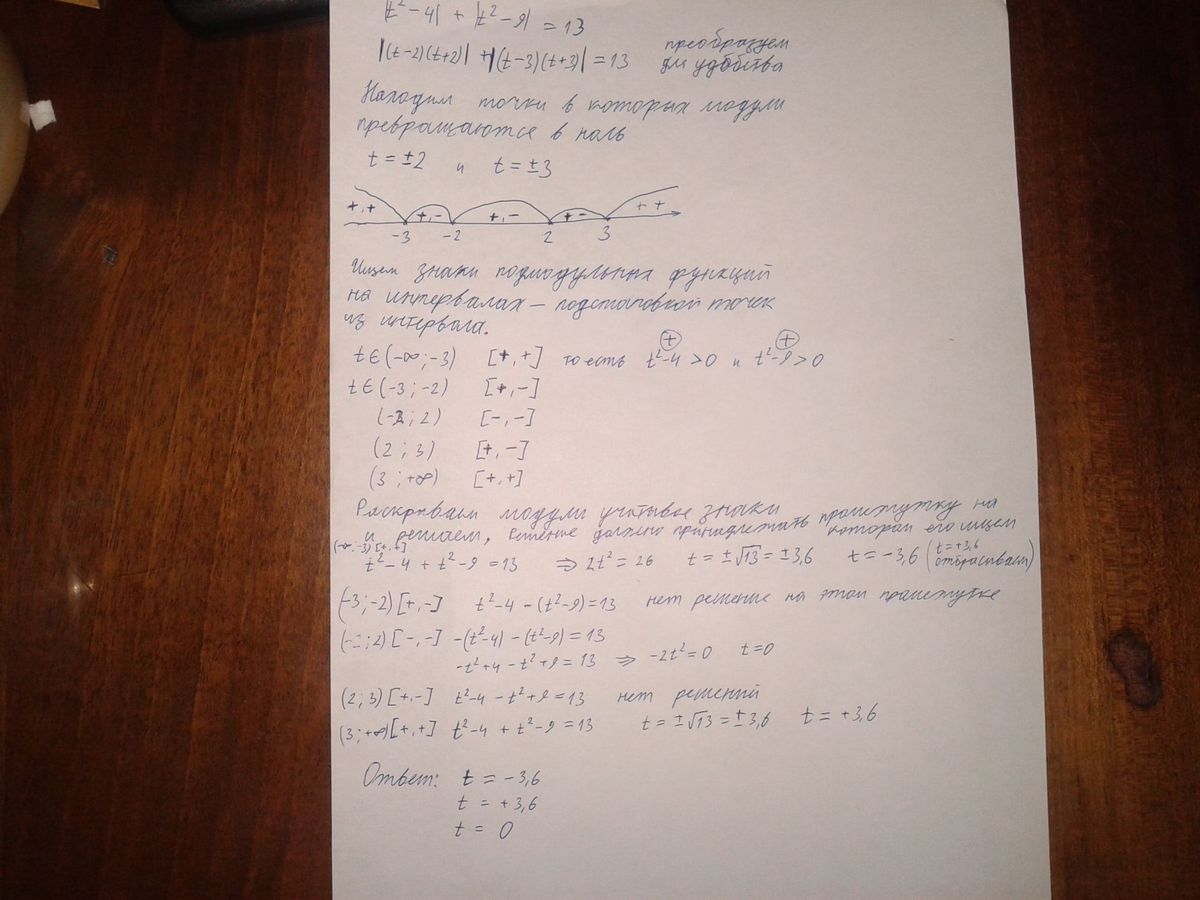 |t²-4| + |t²-9| = 13
|(t-2)(t+2)| + |(t-3)(t+3)| = 13 преобразуем
для удобства
Находим точки в которых модули
превращаются в ноль
t = ±2 и t = ±3
+,+ +,- +,- +- ++
-3 -2 2 3
Ищем знаки подмодульных функций
на интервалах – подстановкой точек
из интервала.
t∈(-∞;-3) [+,+] то есть t²-4>0 и t²-9>0
+ +
t∈(-3;-2) [+,-]
(-2;2) [-,-]
(2;3) [+,-]
(3;+∞) [+,+]
Раскрываем модули учитывая знаки
и решаем, решение должно принадлежать промежутку на
котором его ищем
(-∞;-3) [+,+]
t²-4 + t²-9 = 13 ⇒ 2t² = 26 t = ±√13 = ±3,6 t = -3,6 (t=+3,6 отбрасываем)
(-3;-2) [+,-] t²-4 - (t²-9) = 13 нет решение на этом промежутке
(-2;2) [-,-] -(t²-4) - (t²-9) = 13
-t²+4 - t²+9 = 13 ⇒ -2t² = 0 t=0
(2;3) [+,-] t²-4 - t²+9 = 13 нет решений
(3;+∞) [+,+] t²-4 + t²-9 = 13 t = ±√13 = ±3,6 t = +3,6
Ответ: t = -3,6
t = +3,6
t = 0